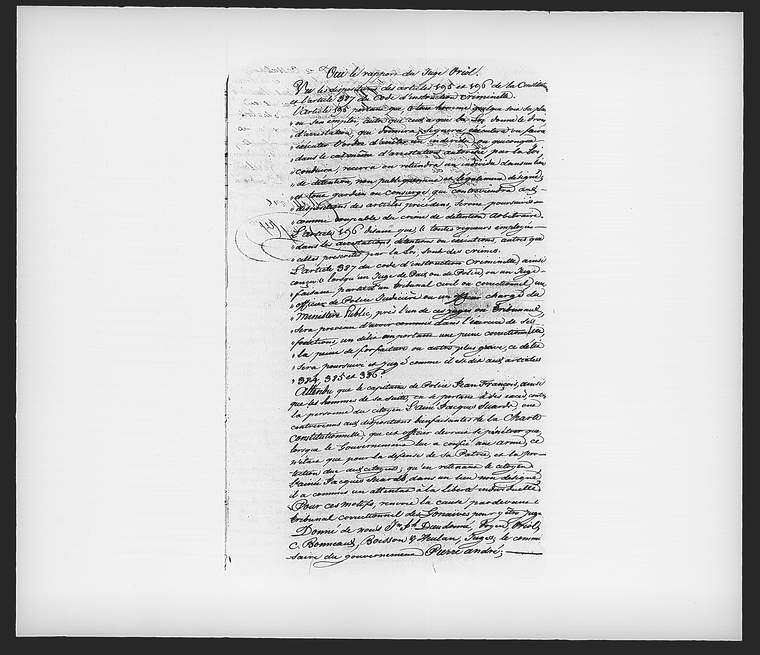 Ouï le rapport du Juge Oriol.
Vu les dispositions des articles 195 et 196 de la Constitution
et l'article 387 du Code d'instruction Criminelle.
L'article 195 portant que, "tout homme quelque soit sa place
ou son emploi, autre que ceux à qui la Loi donne le droit
d'arrestation, qui donnera, signera, exécutera ou fera
exécuter l'ordre d'arrêter un individu, ou quiconque
dans le cas même d'arrestation autorisée par la Loi,
conduira, recevra ou retiendra un individu dans un lieu
de détention, non publiquement et légalement désigné,
et tout gardien ou concierge qui contreviendra aux
dispositions des articles précédens, seront poursuivis
comme coupable du crime de détention arbitraire.
L'article 196 disant que, "toutes rigueurs employées
dans les arrestations, détentions ou exécutions, autres que
celles prescrites par la Loi, sont des crimes.
L'article 387 du code d'instruction Criminelle ainsi
conçu "lorsqu'un Juge de Paix ou de Police, ou un Juge
faisant partie d'un tribunal civil ou correctionnel, un
officier de Police Judiciaire ou un officier chargé du
Ministère Public, près l'un de ces juges ou Tribunaux,
sera prévenu d'avoir commis dans l'exercice de ses
fonctions, un délit emportant une peine correctionnelle,
la peine de forfaiture ou autre plus grave, ce délit
sera poursuivi et jugé comme il est dit aux articles
384, 385 et 386."
Attendu que le capitaine de Police Jean François, ainsi
que les hommes de sa suite, en se portant à des excès contre
la personne du citoyen Lainé Jacques Suarde, ont
contrevenu aux dispositions bienfaisantes de la Charte
Constitutionnelle, que cet officier devrait se pénétrer que,
lorsque le Gouvernement lui a confié une arme, ce
n'était que pour la défense de sa Patrie, et la pro-
tection due aux citoyens; qu'en retenant le citoyen
Lainé Jacques Suarde, dans un lieu non désigné,
il a commis un attentat à la liberté individuelle
Pour ces motifs, renvoie la cause pardevant le
tribunal correctionnel des Gonaïves pour y être jugé.
Donné de nous Daudomé, Oriol,
C. Bonneaux, Boisson & Heulan, Juges, le commis-
saire du gouvernement Pierre André;